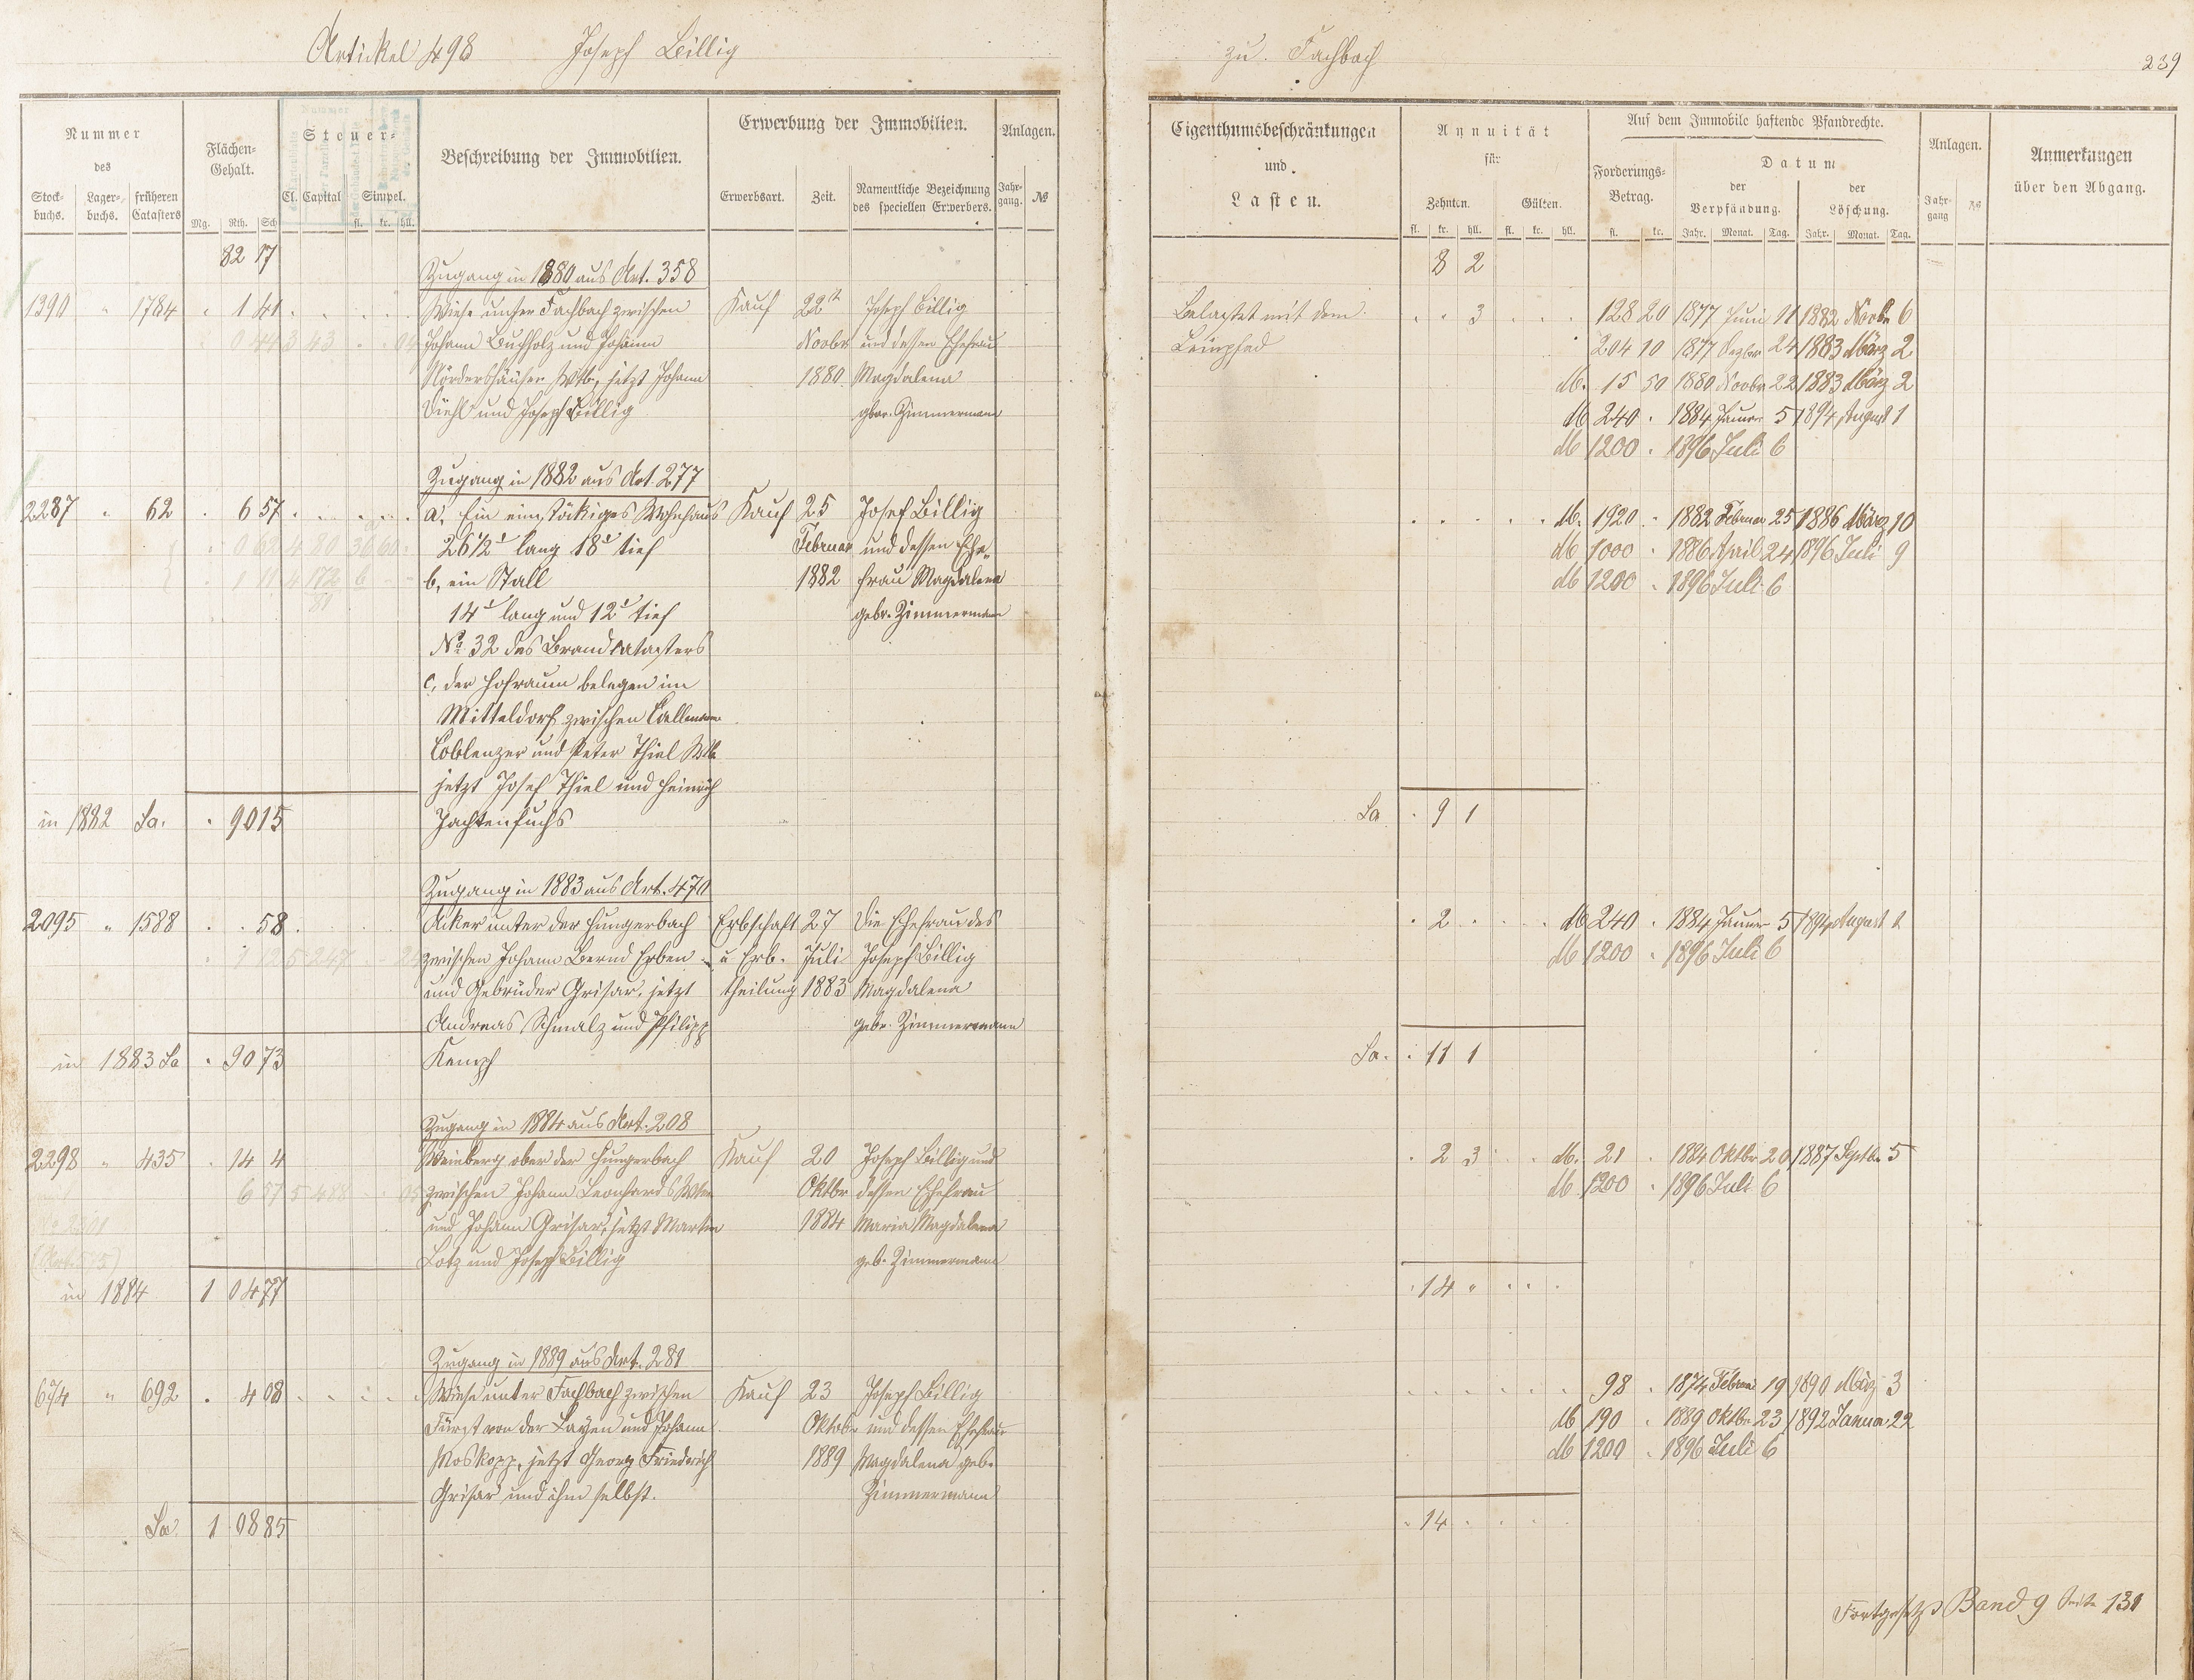 Artikel 498 Joseph Billig
Nummer des
Stockbuchs. Lagerbuchs. früheren Catasters
Flächen-Gehalt.
Mg. Rth. Sch
Steuer-
Cl. Capital Simpel.
fl. kr. hll.
Beschreibung der Immobilien.
Erwerbung der Immobilien.
Erwerbsart. Zeit. Namentliche Bezeichnung des speciellen Erwerbers.
Anlagen.
Jahrgang. №
82 17
Zugang in 1880 aus Art. 358
1390 " 1784 . 1 41 Wiese unter Fachbach zwischen Kauf 22 Joseph Billig
0 44 3 43 04 Johann Buchholz und Johann Novbr und dessen Ehefrau
Nördershäuser Wtb, jetzt Johann 1880 Magdalena
Diehl und Joseph Billig gebor. Zimmermann
Zugang in 1882 aus Art. 277
2287 " 62 . 6 57 a, Ein einstöckiges Wohnhaus Kauf 25 Josef Billig
0 62 4 80 36 60 26 1/2' lang 18' tief Februar und dessen Ehe-
1 11 4 172 6 b, ein Stall 1882 frau Magdalena
81 14' lang und 12' tief gebr. Zimmermann
No 32 des Brandcatasters
c, der Hofraum belegen im
Mitteldorf zwischen
Coblenzer und Peter Thiel Wtb
jetzt Josef Thiel und Heinrich
in 1882 Sa. . 90 15 Jachtenfuchs
Zugang in 1883 aus Art. 470
2095 " 1588 . . 58 Acker unter der Hungerbach Erbschaft 27 Die Ehefrau des
1 12 5 247 zwischen Johann Bernd Erben u Erb- Juli Joseph Billig
und Gebrüder Grisar, jetzt theilung 1883 Magdalena
Andreas Schmalz und Philipp gebr. Zimmermann
in 1883 Sa . 90 73 Kempf
Zugang in 1884 aus Art. 208
2298 " 435 . 14 4 Weinberg ober der Hungerbach Kauf 20 Joseph Billig und
6 57 5 488 05 zwischen Johann Leonhards Wtw Oktbr dessen Ehefrau
No 2301 und Johann Grisar, jetzt Martin 1884 Maria Magdalena
(Art. 575) Lotz und Joseph Billig geb. Zimmermann
in 1884 1 04 77
Zugang in 1889 aus Art. 281
674 " 692 . 4 08 Wiese unter Fachbach zwischen Kauf 23 Joseph Billig
Fürst von der Layen und Johann Oktober und dessen Ehefrau
Moskopp, jetzt Georg Friedrich 1889 Magdalena geb.
Grisar und ihm selbst. Zimmermann
Sa 1 08 85
zu. Fachbach 239
Eigenthumsbeschränkungen und Lasten.
Annuität für
Zehnten. Gülten.
fl. kr. hll. fl. kr. hll.
Auf dem Immobile haftende Pfandrechte.
Forderungs-Betrag.
fl. kr.
Datum
der Verpfändung. der Löschung.
Jahr. Monat. Tag. Jahr. Monat. Tag.
Anlagen.
Jahrgang №
Anmerkungen über den Abgang.
8 2
Belastet mit dem . . 3 128 20 1877 Juni 11 1882 Novbr 6
Leinpfad 204 10 1877 Dezbr 24 1883 März 2
db. 15 50 1880 Novbr 22 1883 März 2
db 240 . 1884 Januar 5 1894 August 1
db 1200 . 1896 Juli 6
db. 1920 . 1882 Februar 25 1886 März 10
db 1000 . 1886 April 24 1896 Juli 9
db 1200 . 1896 Juli 6
Sa . 9 1
. 2 . db 240 . 1884 Januar 5 1894 August 1
db 1200 . 1896 Juli 6
Sa. . 11 1
. 2 3 db. 21 . 1884 Oktbr 20 1887 Septbr 5
db 1200 . 1896 Juli 6
. 14 "
98 . 1874 Februar 19 1890 März 3
db 190 . 1889 Oktbr 23 1892 Januar 22
db 1200 . 1896 Juli 6
. 14 .
Fortgesetzt Band 9 Seite 131